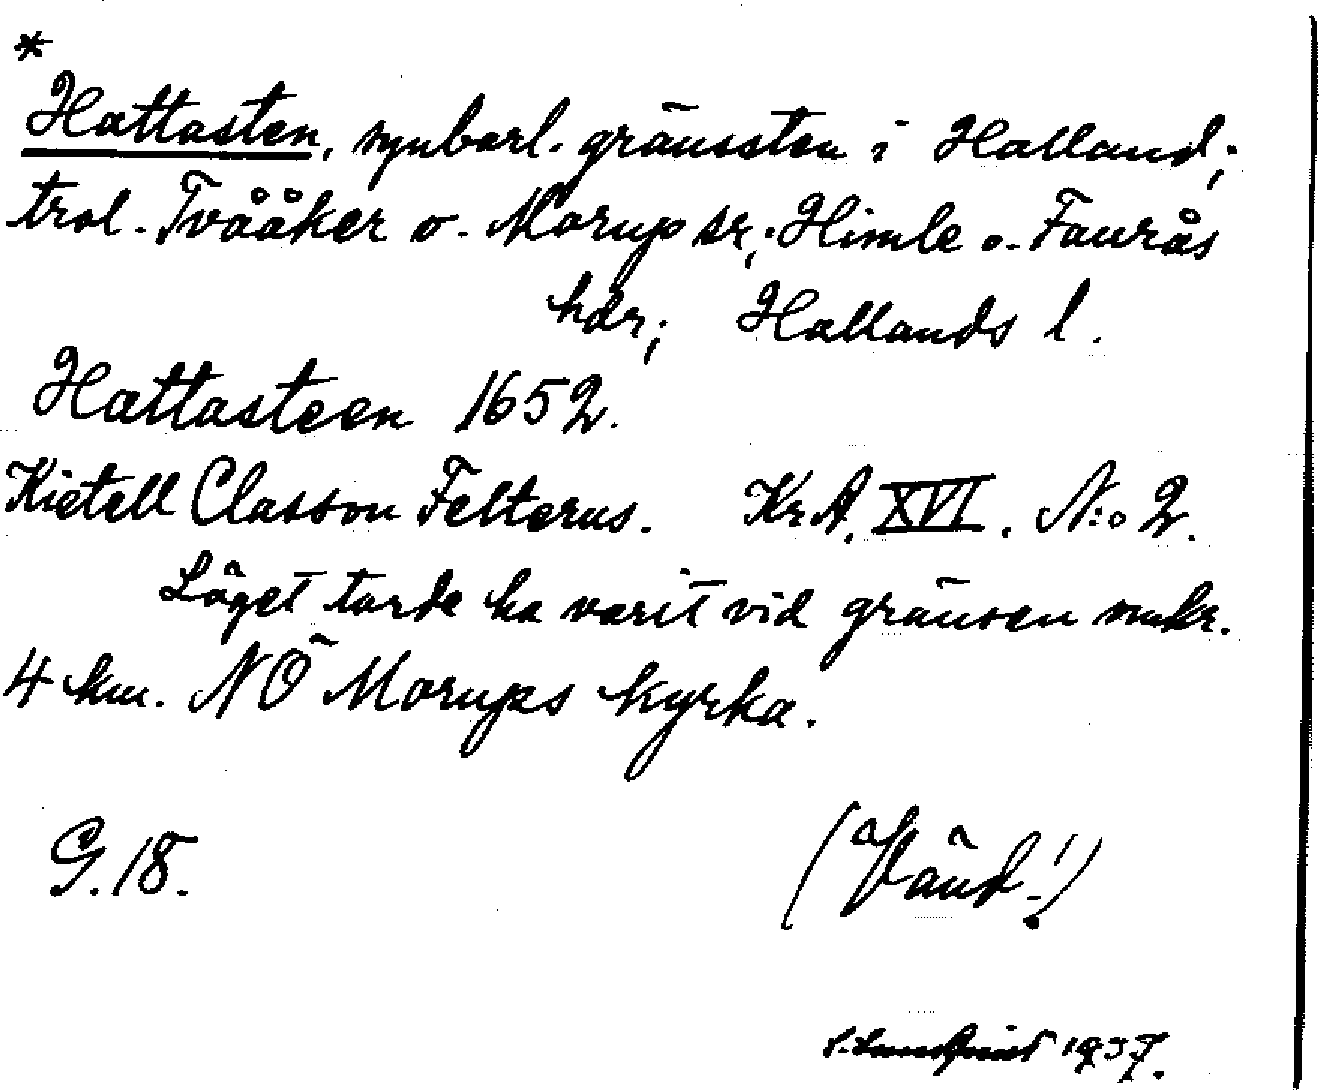 *
Hattasten, synbarl. gränssten i Halland;
trol. Tvååker o. Morup sr; Himle o. Faurås
hdr; Hallands l.
Hattasteen 1652.
Kietell Classon Felterus. Kr.A. XVI. N:o 2.
Läget torde ha varit vid gränsen makr.
4 km. NÖ Morups kyrka.
G. 18.
(Vänd!)
1937.